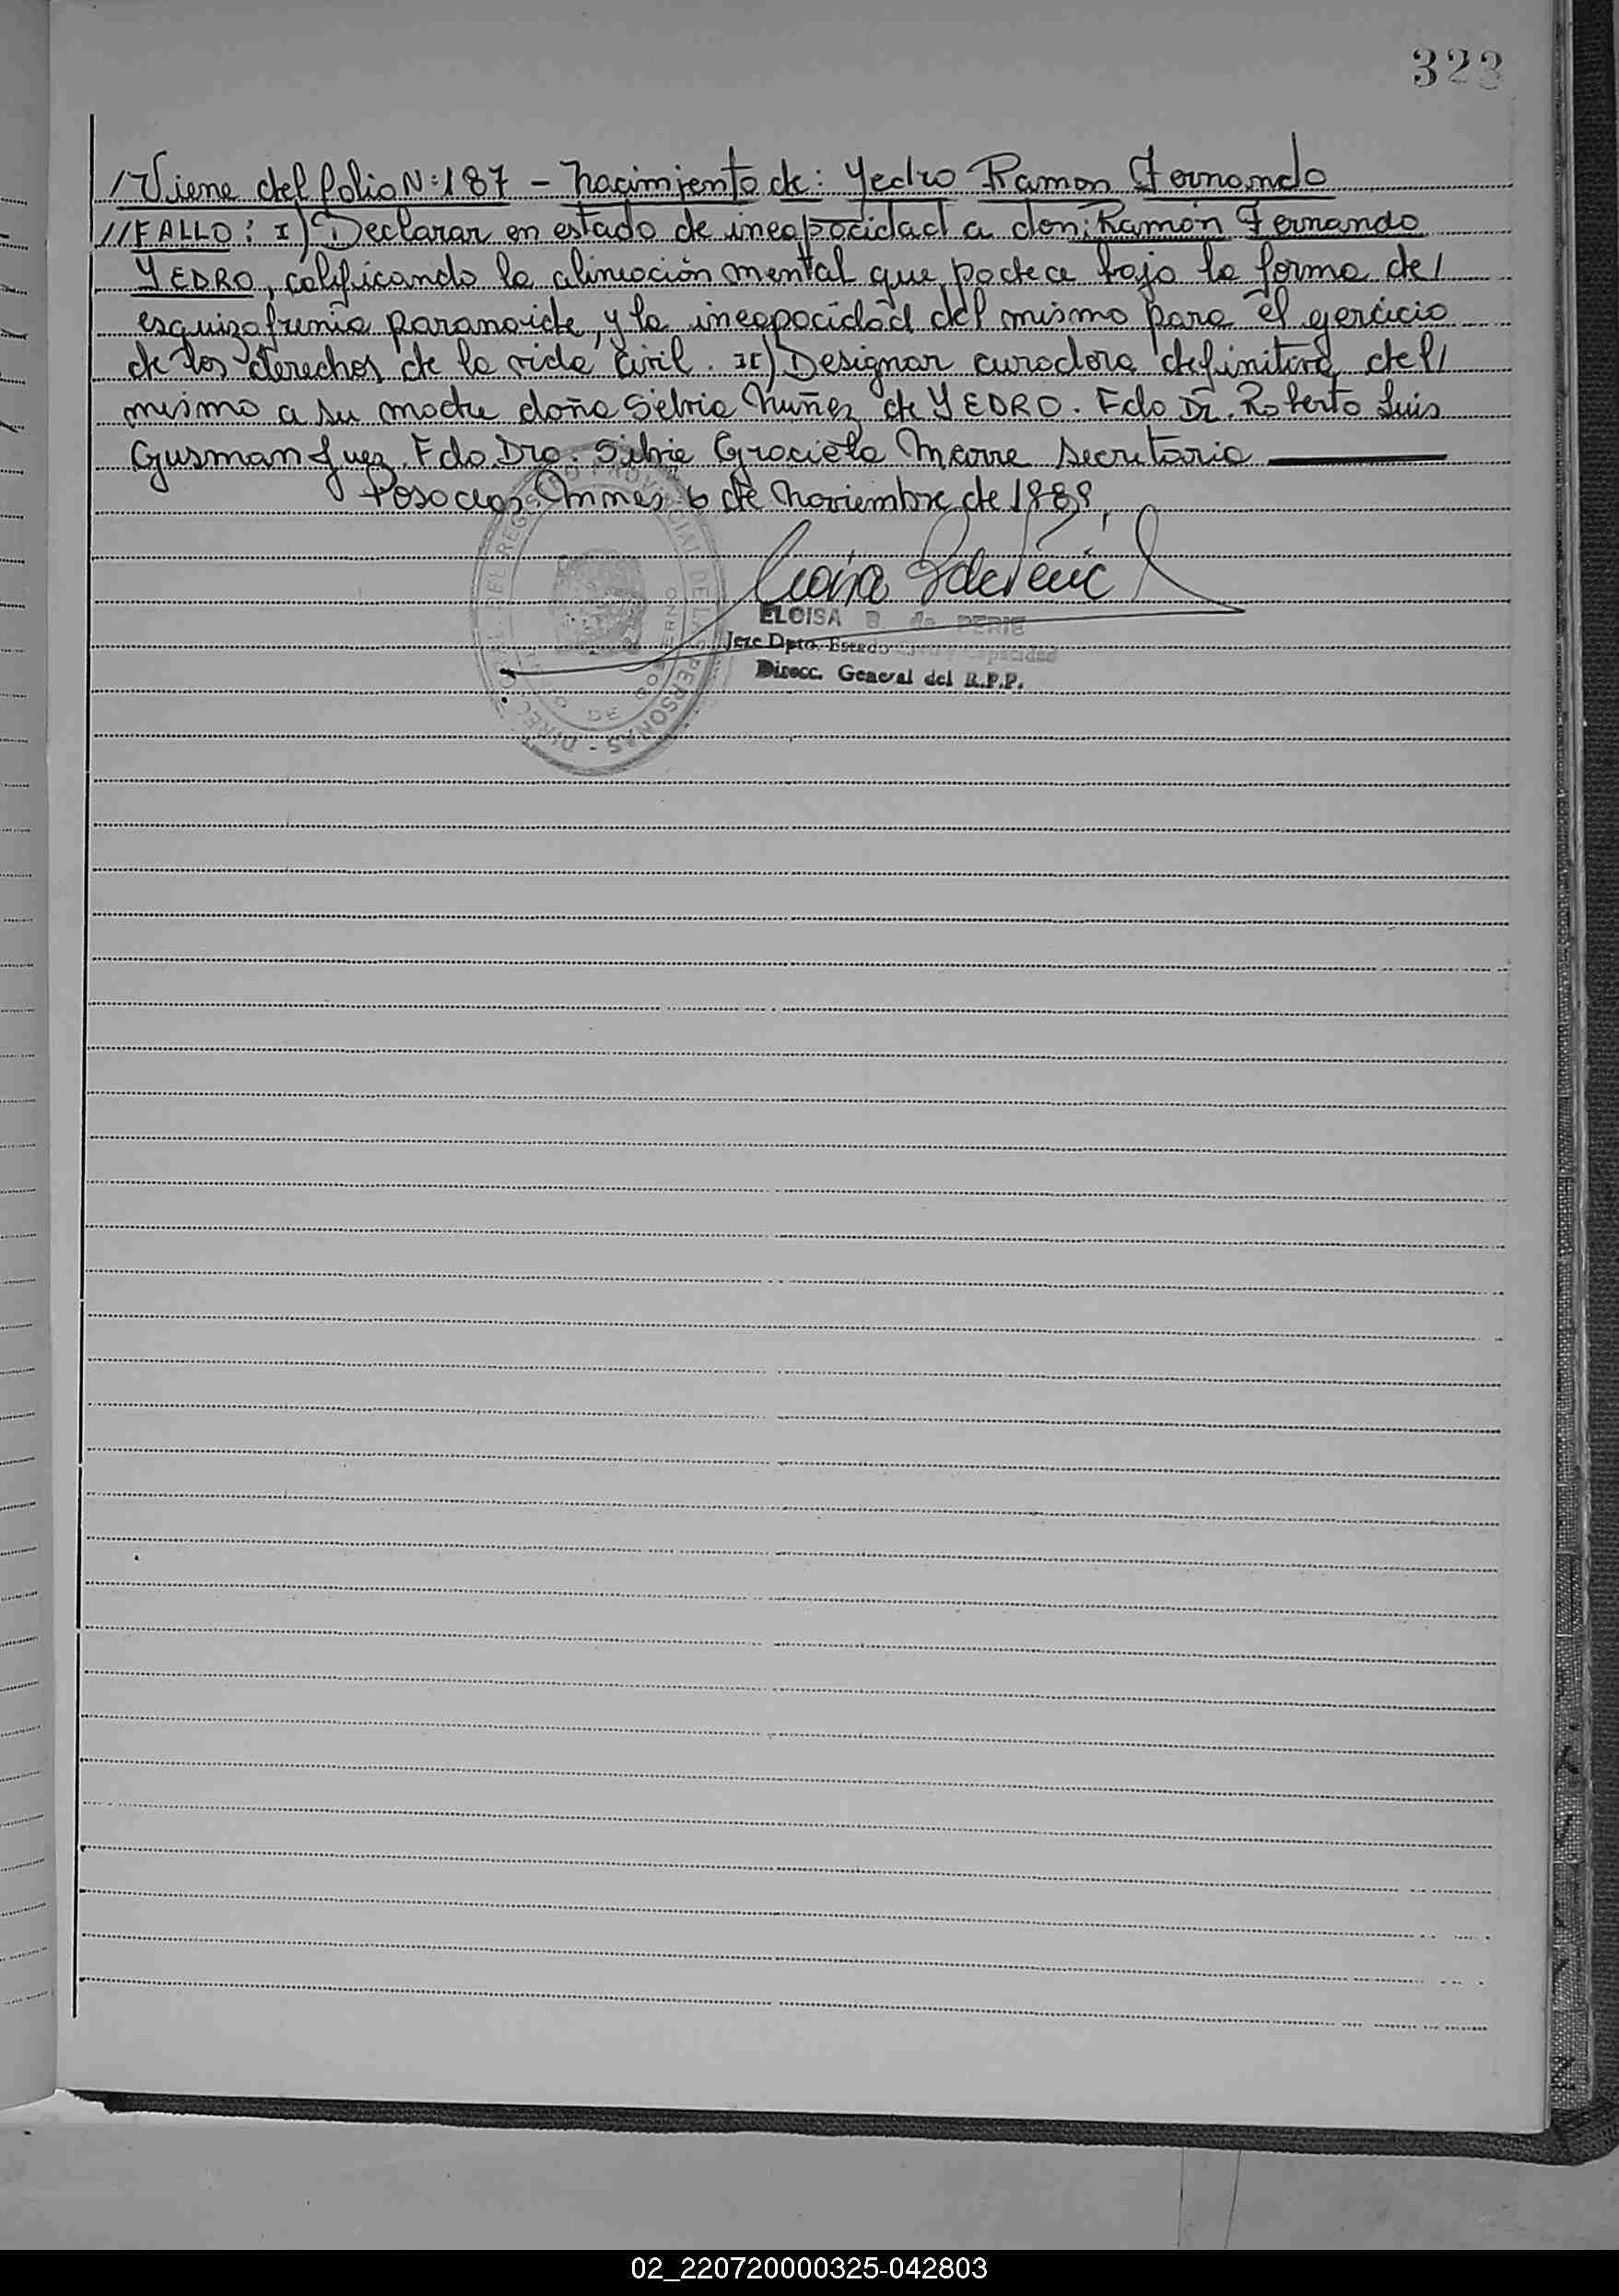 323
/Viene del folio N:187 - Nacimiento de: Yedro Ramon Fernando
//FALLO: I) Declarar en estado de incapacidad a don: Ramón Fernando
YEDRO, calificando la alineación mental que padece bajo la forma de/
esquizofrenia paranoide, y la incapacidad del mismo para el ejercicio
de los derechos de la vida civil. II) Designar curadora definitiva del/
mismo a su madre doña Silvia Nuñez de YEDRO. Fdo Dr. Roberto Luis
Gusman Juez. Fdo. Dra. Silvia Graciela Marre Secretaria
Posadas, Mnes, 6 de Noviembre de
ELOISA B. de PERIE
Jefe Dpto. Estado Civil y Capacidad
Direcc. General del R.P.P.
DIRECC. GRAL. DEL REGISTRO PROVINCIAL DE LAS PERSONAS
02_220720000325-042803